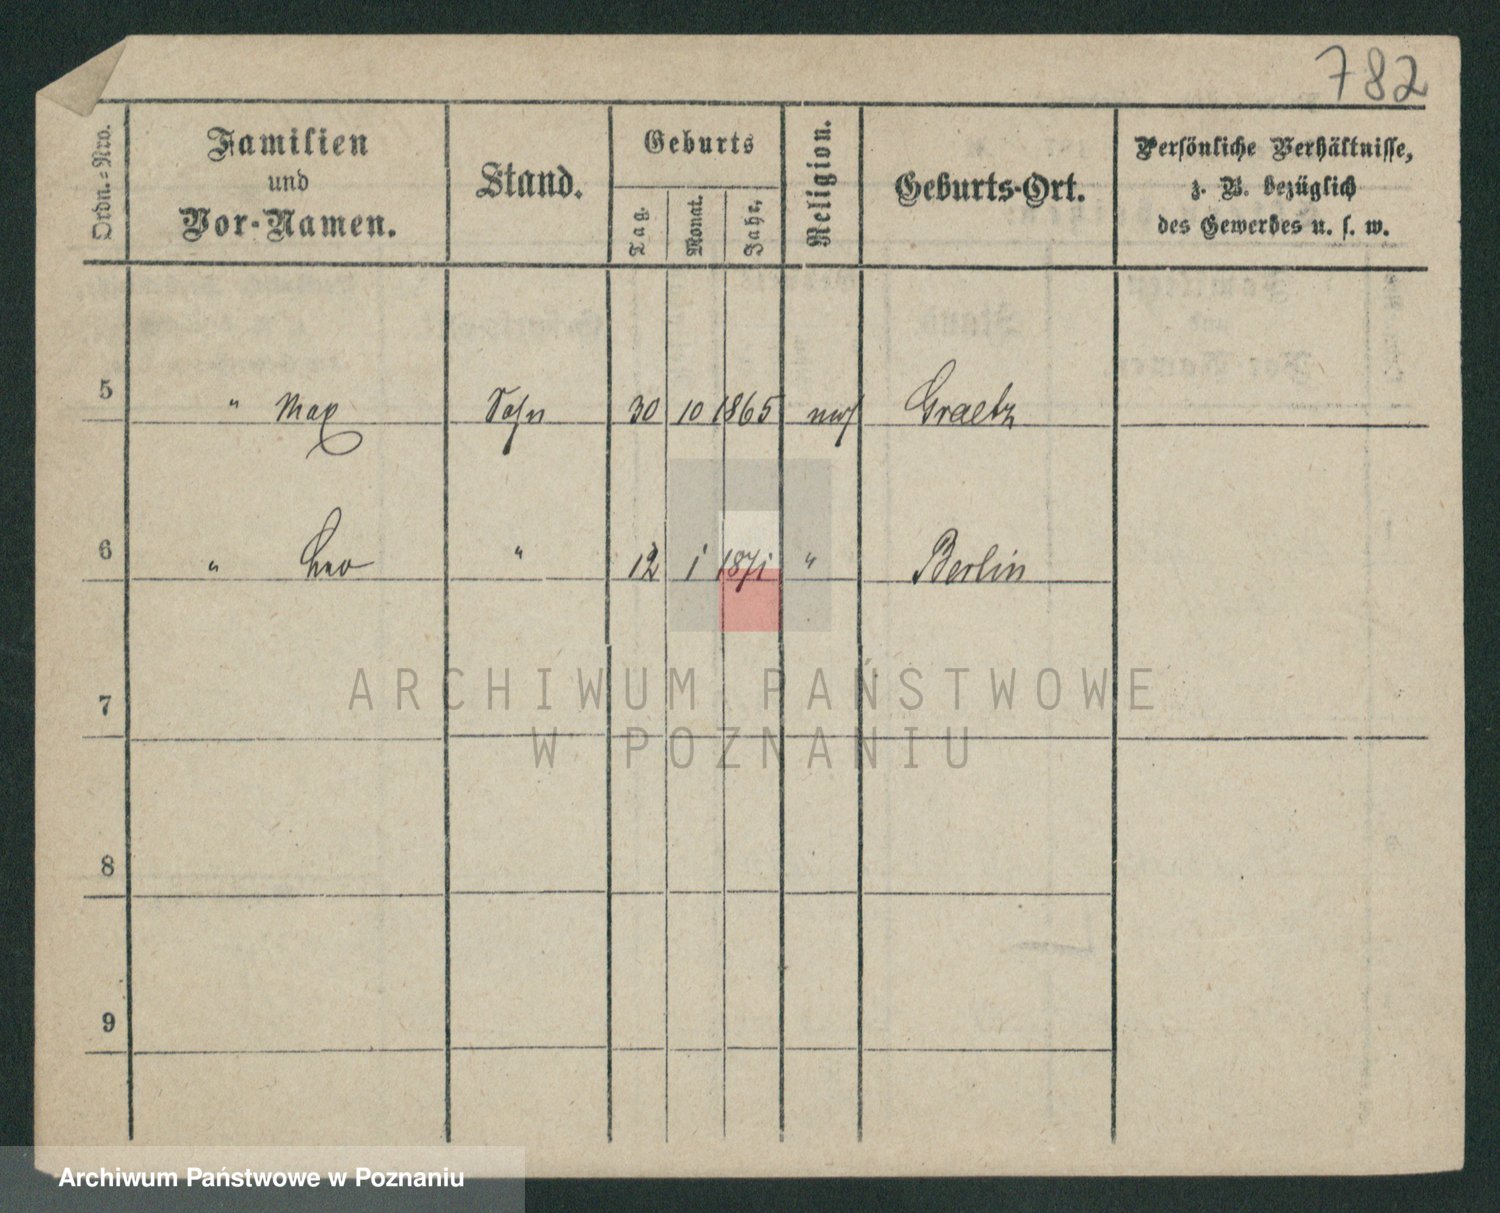 782
Ordn.-Nro.
Familien
und
Vor-Namen.
Stand.
Geburts
Tag.
Monat.
Jahr.
Religion.
Geburts-Ort.
Persönliche Verhältnisse,
z. B. bezüglich
des Gewerbes u. s. w.
5 " Max Sohn 30 10 1865 mos Graetz
6 " Leo " 12 1 1871 " Berlin
7
8
9
ARCHIWUM PAŃSTWOWE
W POZNANIU
Archiwum Państwowe w Poznaniu